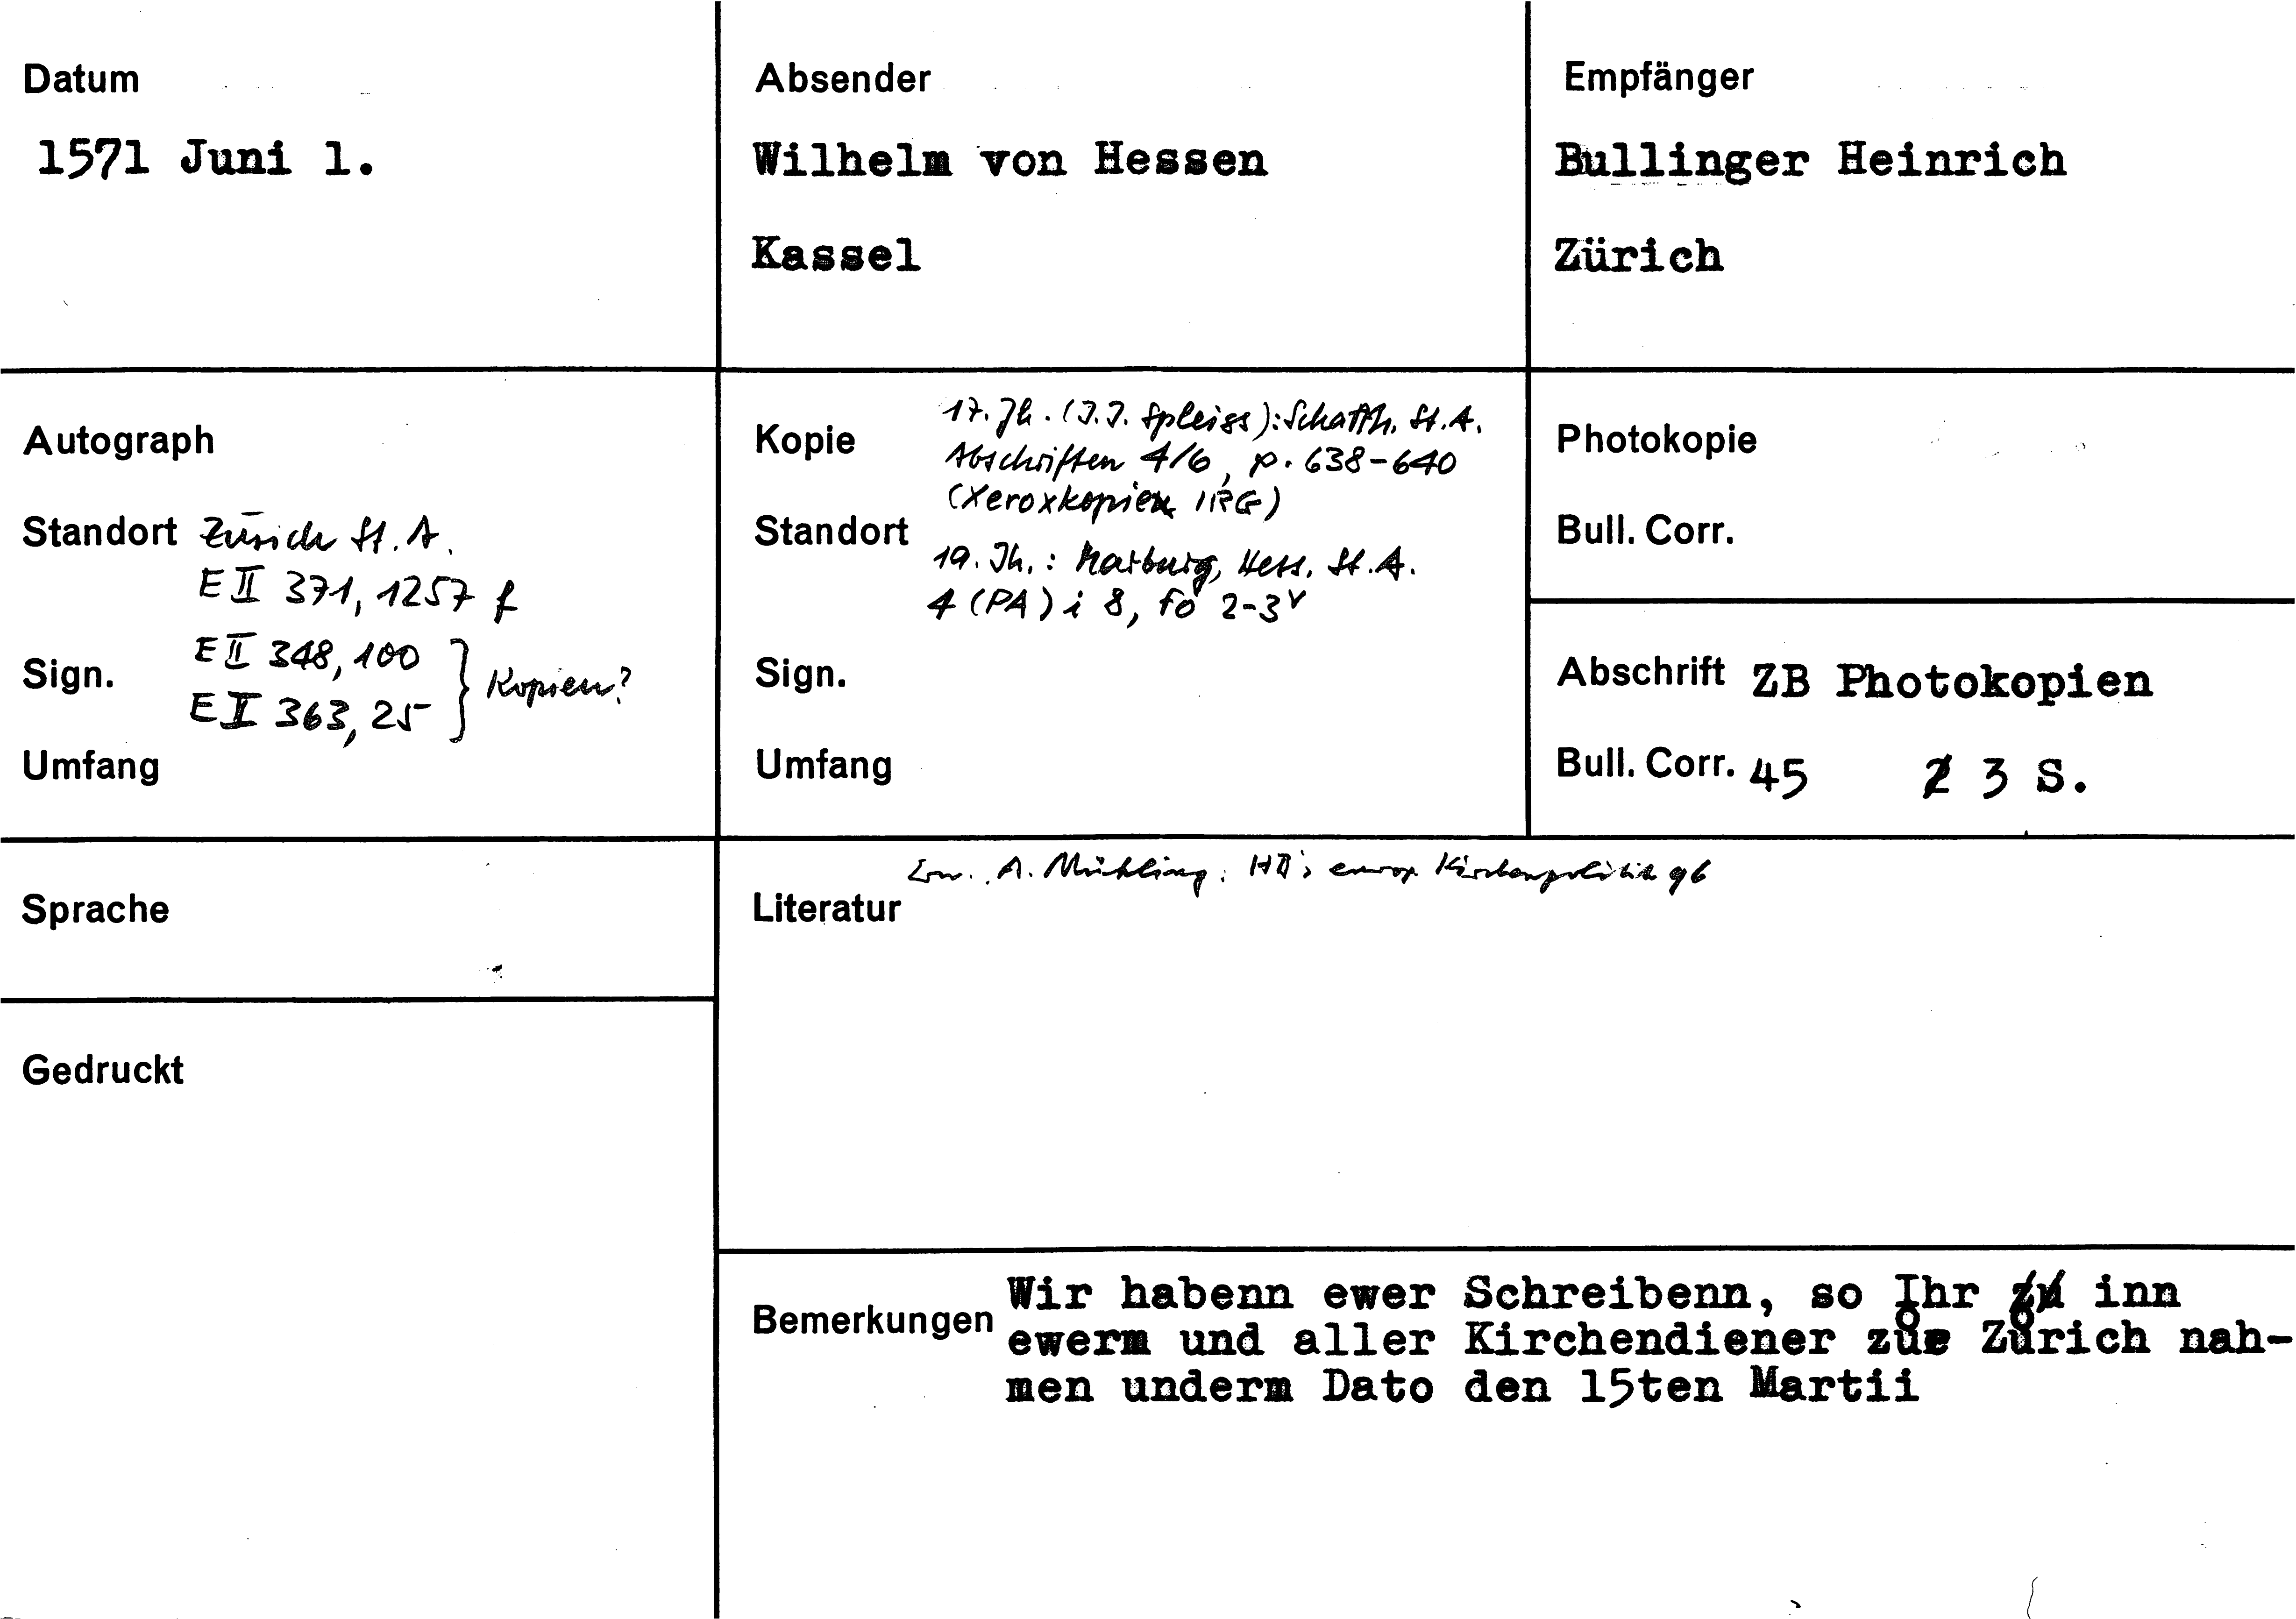 Datum
1571 Juni 1.
Absender
Wilhelm von Hessen
Kassel
Empfänger
Bullinger Heinrich
Zürich
Autograph
Standort Zürich St. A.
E II 371, 1257 f
Sign.
E II 348, 100
E II 363, 25 } Kopien?
Umfang
Kopie
17. Jh. (J.J. Spleiss): Schaffh. St. A.
Abschriften 4/6, p. 638-640
(Xeroxkopien IRG)
Standort
19. Jh.: Marburg, Hess. St. A.
4 (PA) i 8, fo 2-3v
Sign.
Umfang
Photokopie
Bull. Corr.
Abschrift ZB Photokopien
Bull. Corr. 45 2 3 S.
Sprache
Gedruckt
Literatur
A. Mühling: HB's europ Kirchenpolitik 96
Bemerkungen
Wir habenn ewer Schreibenn, so Ihr zu inn
ewerm und aller Kirchendiener zůe Zůrich nah-
men underm Dato den 15ten Martii